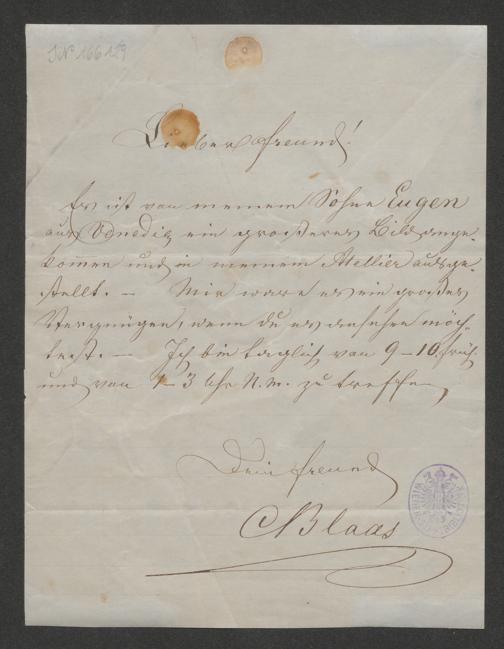 JN 166129
Lieber Freund!
Es ist von meinem Sohne Eugen
aus Venedig ein größeres Bild ange-
kommen und in meinem Atellier ausge-
stellt. – Mir wäre es ein großes
Vergnügen, wenn du es ansehen möch-
test. – Ich bin täglich von 9–10 früh
und von 1–3 Uhr N.M. zu treffen
Dein Freund
CBlaas